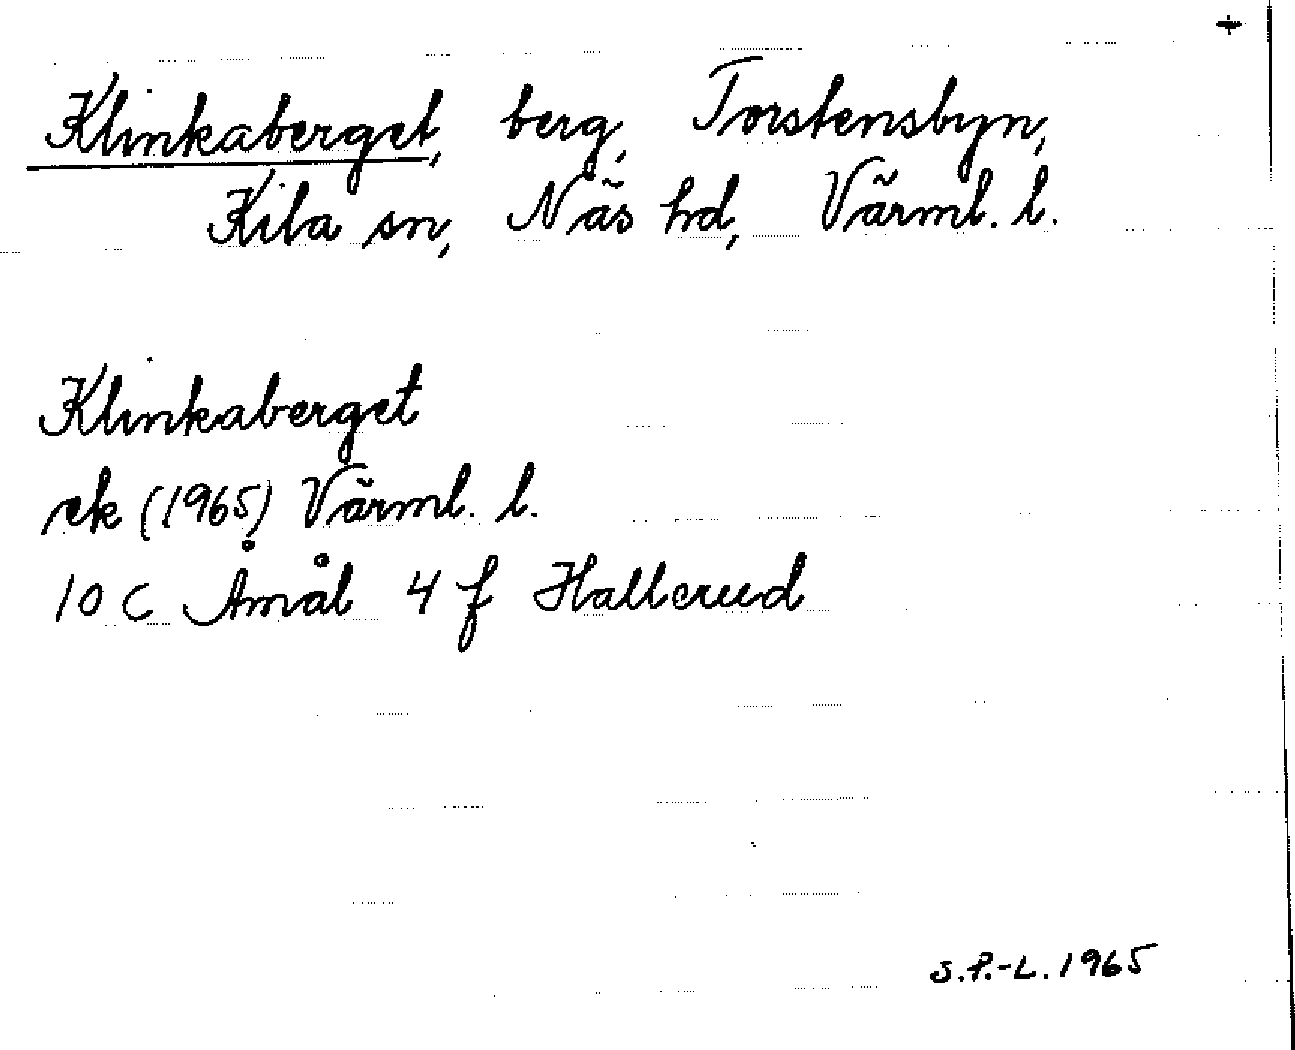 +
Klinkaberget, berg, Torstensbyn,
Kila sn, Näs hd, Värml. l.
Klinkaberget
ek (1965) Värml. l.
10 C Åmål 4 f Hallerud
S.P.-L. 1965